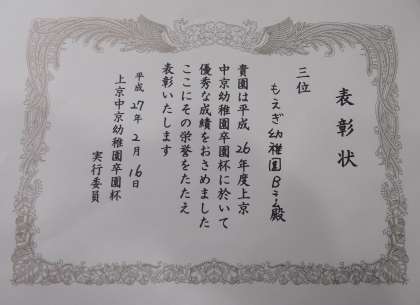 表彰状
三位
もえぎ幼稚園Bチーム殿
貴園は平成26年度上京
中京幼稚園卒園杯に於いて
優秀な成績をおさめました
ここにその栄誉をたたえ
表彰いたします
平成27年2月16日
上京中京幼稚園卒園杯
実行委員